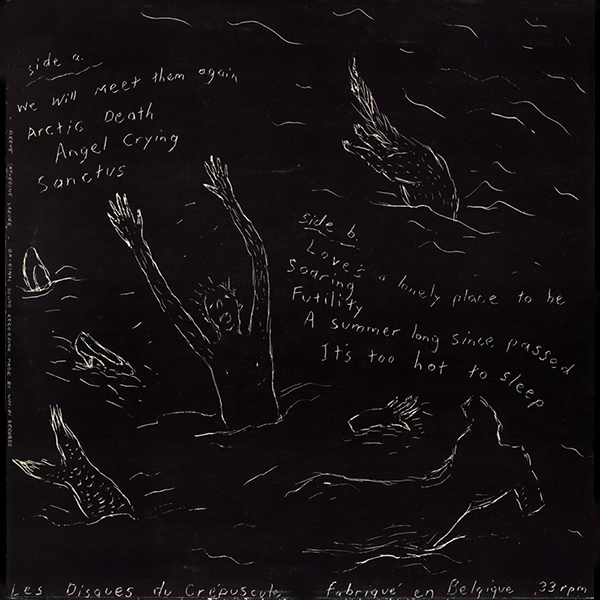 side a.
we will meet them again
Arctic Death
Angel Crying
Sanctus
side b.
Love's a lonely place to be
Soaring
Futility
A summer long since passed
It's too hot to sleep
ORIGINAL SOUND RECORDING MADE BY
RECORDS
Les Disques du Crépuscule fabriqué en Belgique 33 rpm